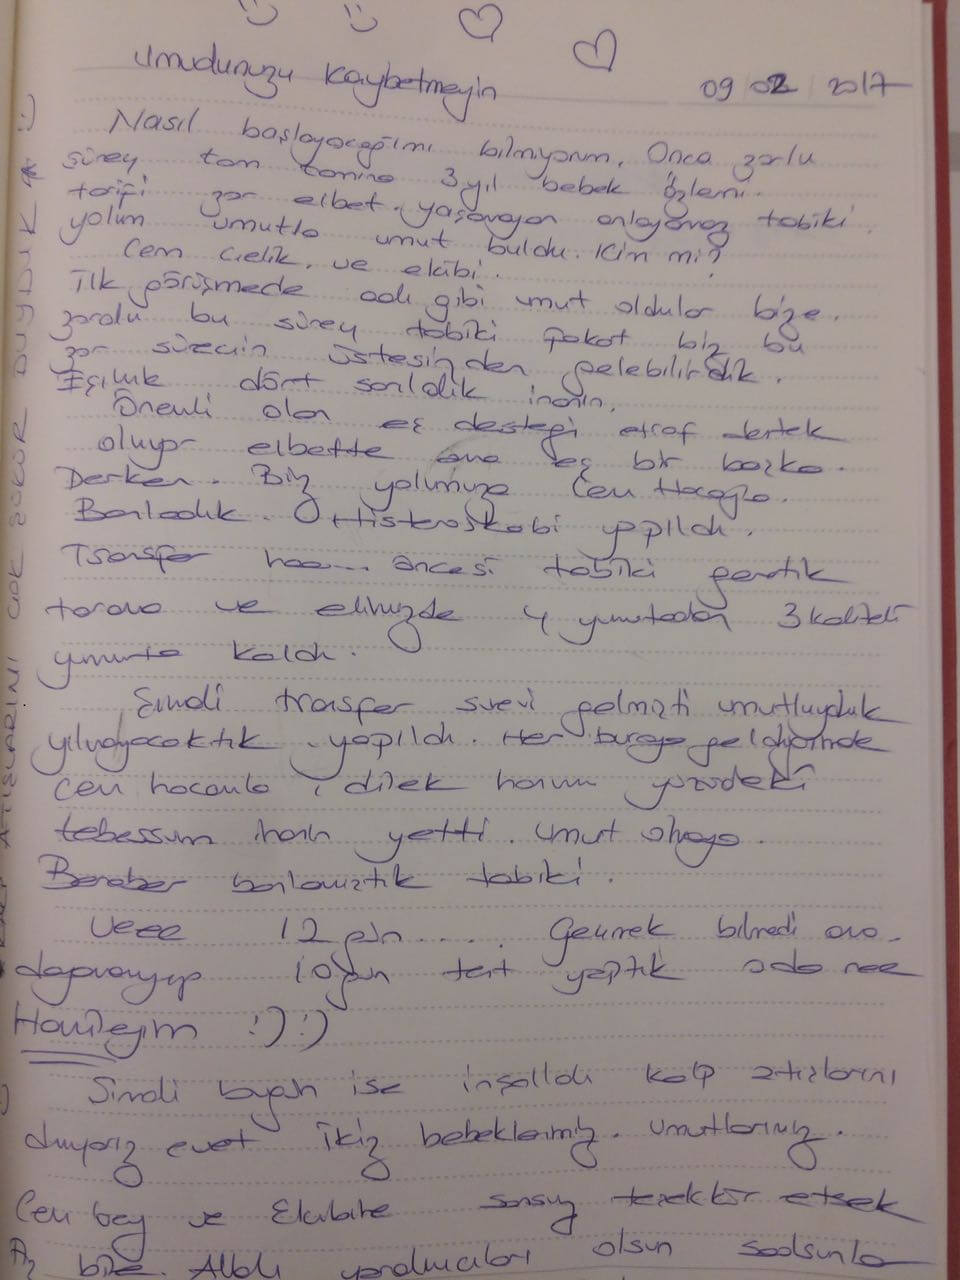 Umudunuzu Kaybetmeyin
09 02 2017
Nasıl başlayacağımı bilmiyorum. Onca zorlu
süreç tam tamına 3 yıl bebek özlemi.
tarifi zor elbet. yaşayan anlayavaz tabiki.
yolum umutla umut buldu. Kim mi?
Cem Çelik. ve ekibi.
İlk görüşmede adı gibi umut oldular bize.
zordu bu süreç tabiki fakat biz bu
zor sürecin üstesinden gelebilirdik.
Eşimle dört sarıldık inanın.
Önemli olan eş desteği etraf destek
oluyor elbette ama eş bir başka.
Derken. Biz yolumuza Cem Hocayla.
Başladık. Histeroskobi yapıldı.
Transfer öncesi tabiki genetik
tarama ve elimizde 4 yumurtadan 3 kaliteli
yumurta kaldı.
Şimdi transfer süreci gelmişti umutluyduk
yılmayacaktık. yapıldı. Her buraya geldiğimde
Cem hocamla, dilek hanım yüzündeki
tebessüm inanın yetti. umut olmaya.
Beraber başlamıştık tabiki.
Veee 12 gün..... Geçmek bilmedi ama.
dayanamayıp 10 gün test yaptık o da nee
Hamileyim :) :)
Şimdi bugün ise inşallah kalp atışlarını
duyarız evet ikiz bebeklerimiz. umutlarımız.
Cem bey ve Ekibine sonsuz teşekkür etsek
Az bile. Allah yardımcıları olsun sağlsunla
ATIŞLARINI ÇOK ŞÜKÜR DUYDUK :)